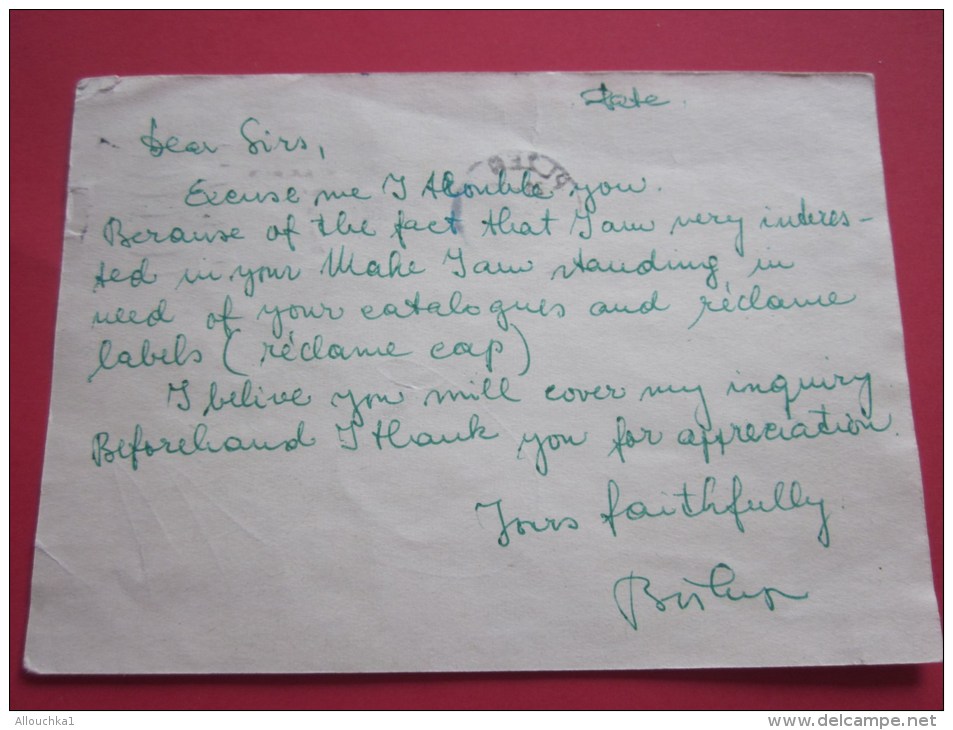 Date.
Dear Sirs,
Excuse me I trouble you.
Becrause of the fact that I am very interes-
ted in your Make I am standing in
need of your catalogues and réclame
labels (réclame cap)
I belive you will cover my inquiry
Beforehand I thank you for appreciation.
Yours faithfully.
Allouchka1
www.delcampe.net